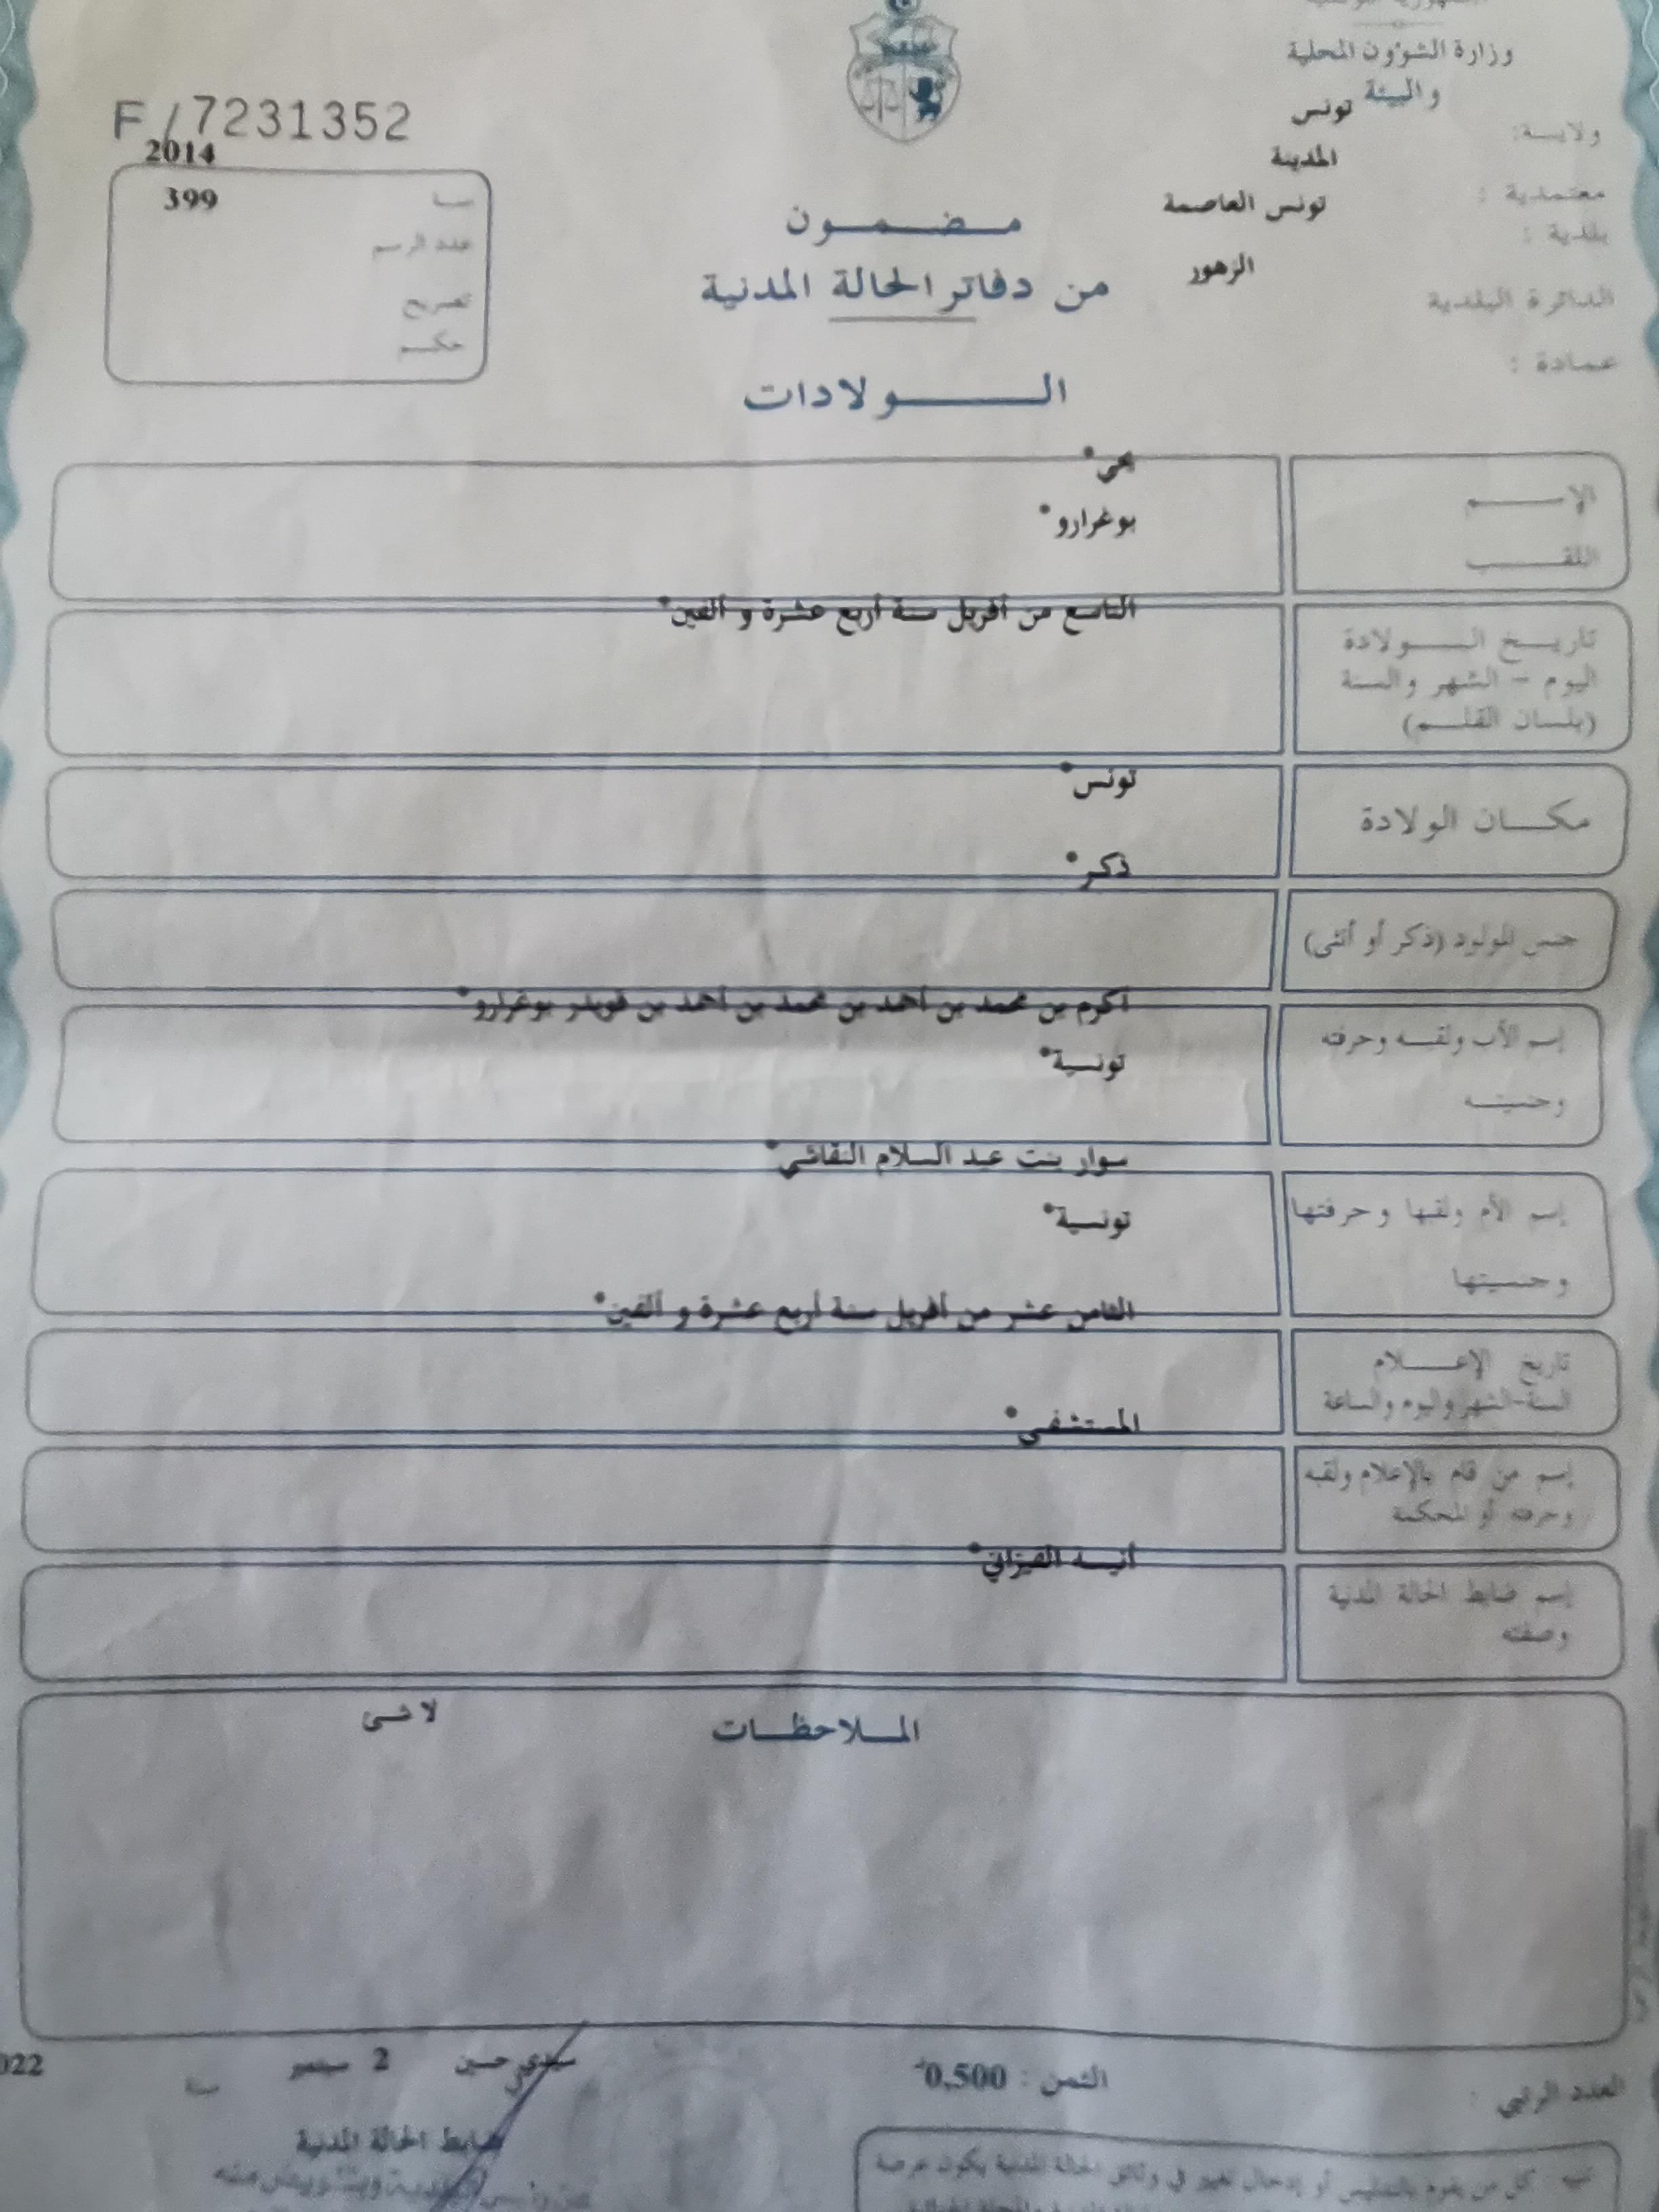 وزارة الشؤون المحلية
والبيئة
ولاية: تونس
معتمدية : المدينة
بلدية : تونس العاصمة
الدائرة البلدية الزهور
عمادة :
F/7231352
2014
سنة 399
عدد الرسم
تصريح
حكم
مضمون
من دفاتر الحالة المدنية
الولادات
الإسم يحي*
اللقب بوغرارو*
تاريخ الولادة التاسع من أفريل سنة أربع عشرة و ألفين*
اليوم - الشهر والسنة
(بلسان القلم)
مكان الولادة تونس*
جنس المولود (ذكر أو أنثى) ذكر*
إسم الأب ولقبه وحرفته أكرم بن محمد بن أحمد بن محمد بن أحمد بن قويدر بوغرارو*
وجنسيته تونسية*
إسم الأم ولقبها وحرفتها سوار بنت عبد السلام النقاشي*
وجنسيتها تونسية*
تاريخ الإعلام الثامن عشر من أفريل سنة أربع عشرة و ألفين*
السنة-الشهر واليوم والساعة
إسم من قام بالإعلام ولقبه المستشفى*
وحرفته أو المحكمة
إسم ضابط الحالة المدنية أنيسة
وصفته
الملاحظات لا شئ
العدد الرتبي :
الثمن : 0,500
سيدي حسين 2 سبتمبر سنة 022
ضابط الحالة المدنية
تنبيه : كل من يقوم بالتدليس أو إدخال تغيير في وثائق الحالة المدنية يكون عرضة